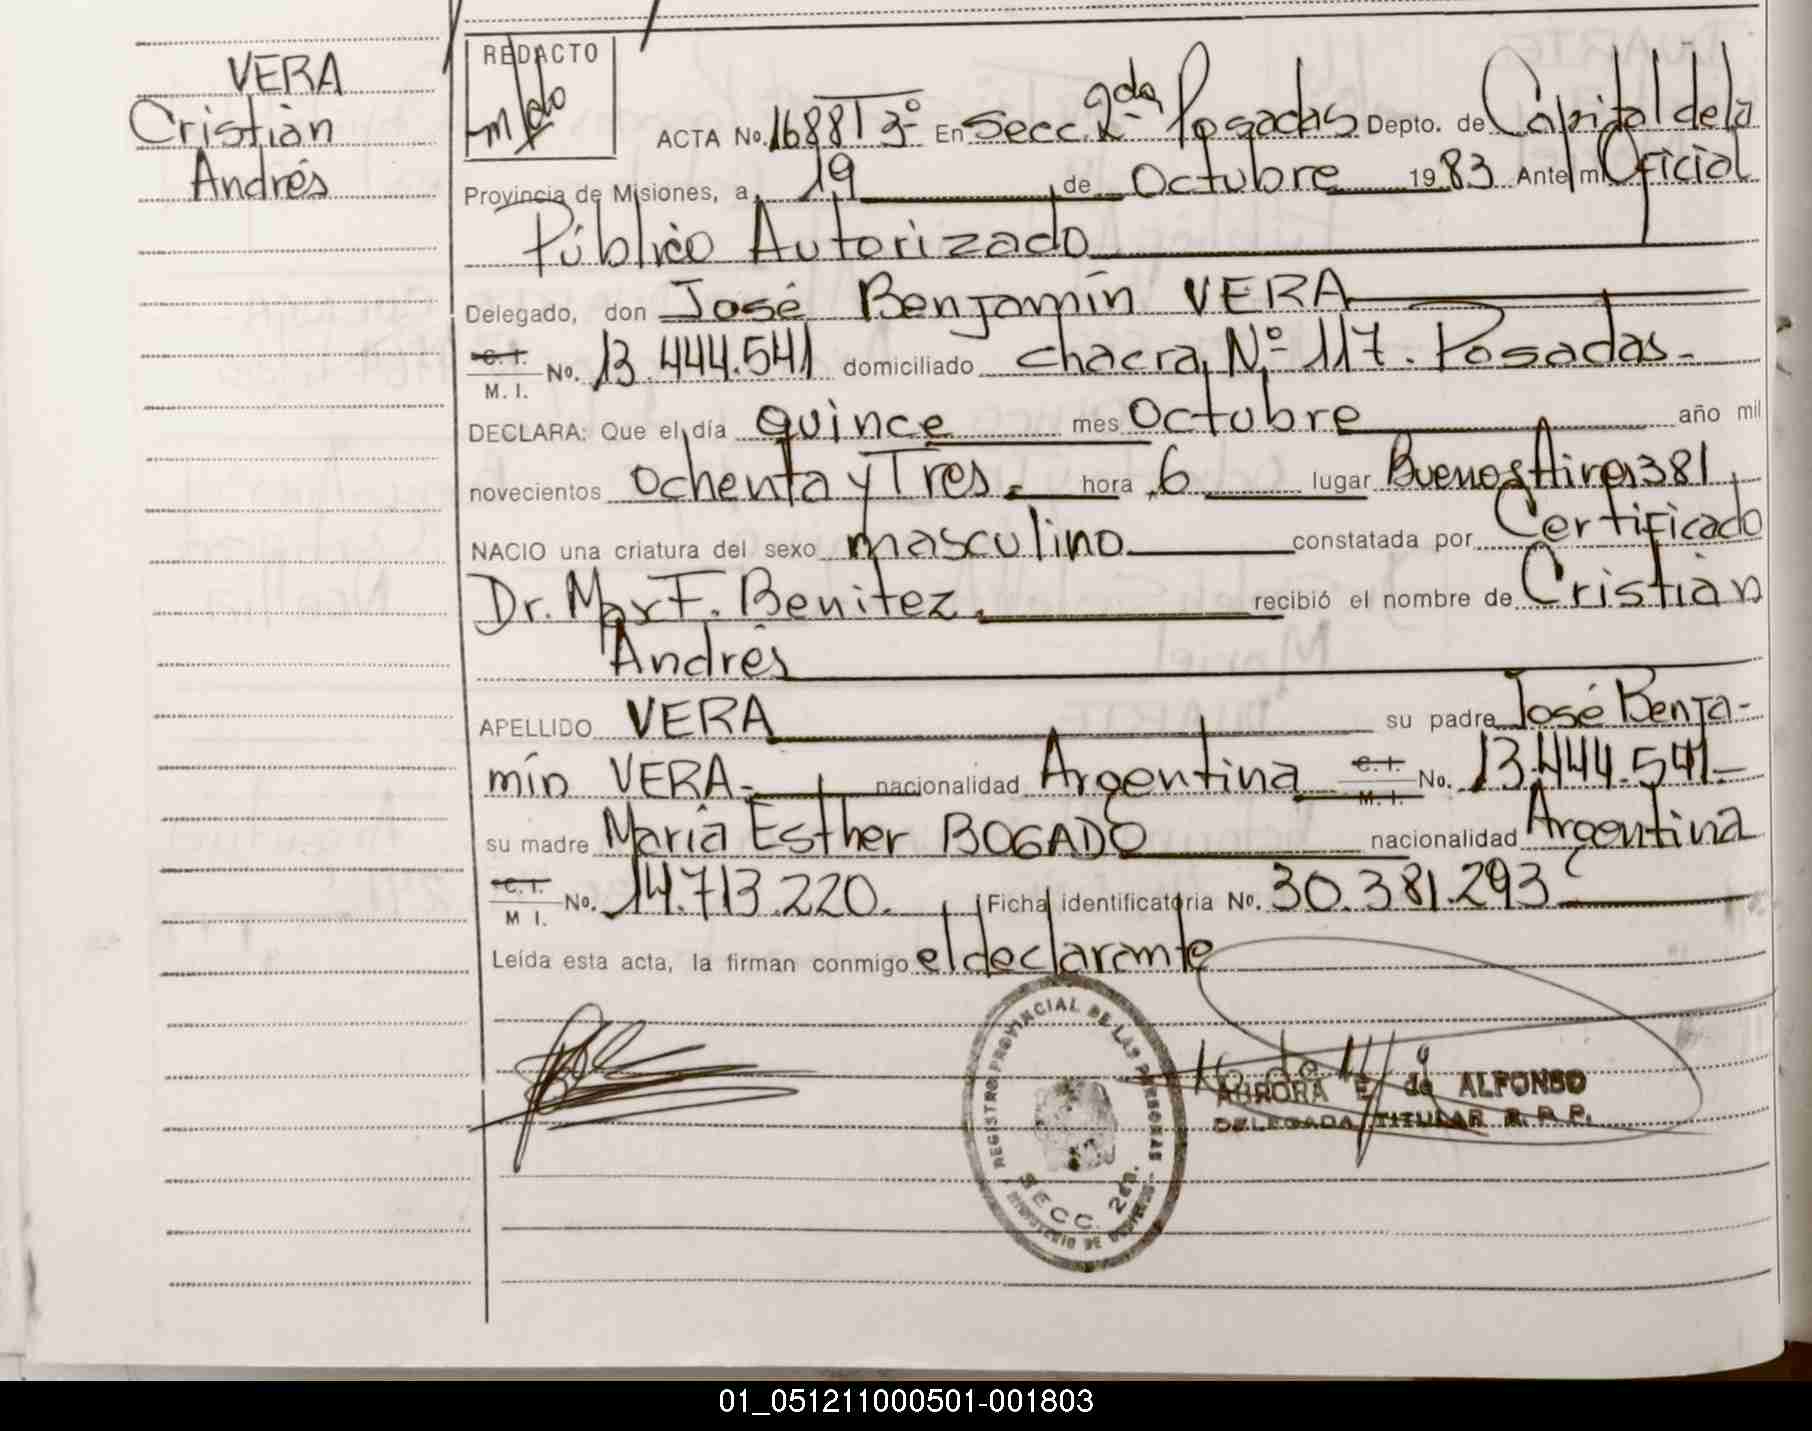 VERA
Cristian
Andrés
REDACTO
ACTA No. 1688 T 3º En Secc. 2da Posadas Depto. de Capital de la
Provincia de Misiones, a 19 de Octubre 1983 Ante mi Oficial
Público Autorizado
Delegado, don José Benjamín VERA
C. I.
M. I. No. 13.444.541 domiciliado chacra Nº 117. Posadas.
DECLARA: Que el día quince mes Octubre año mil
novecientos Ochenta y Tres. hora 6 lugar Buenos Aires 381
NACIO una criatura del sexo masculino constatada por Certificado
Dr. Max F. Benitez. recibió el nombre de Cristian
Andrés
APELLIDO VERA su padre José Benja-
mín VERA. nacionalidad Argentina C. I. M. I. No. 13.444.541
su madre María Esther BOGADO nacionalidad Argentina
C. I.
M I. No. 14.713.220. Ficha identificatoria No. 30.381.293
Leída esta acta, la firman conmigo el declarante
REGISTRO PROVINCIAL DE LAS PERSONAS
SECC. 2da.
MINISTERIO DE GOBIERNO
AURORA E. de ALFONSO
DELEGADA TITULAR R. P. P.
01_051211000501-001803